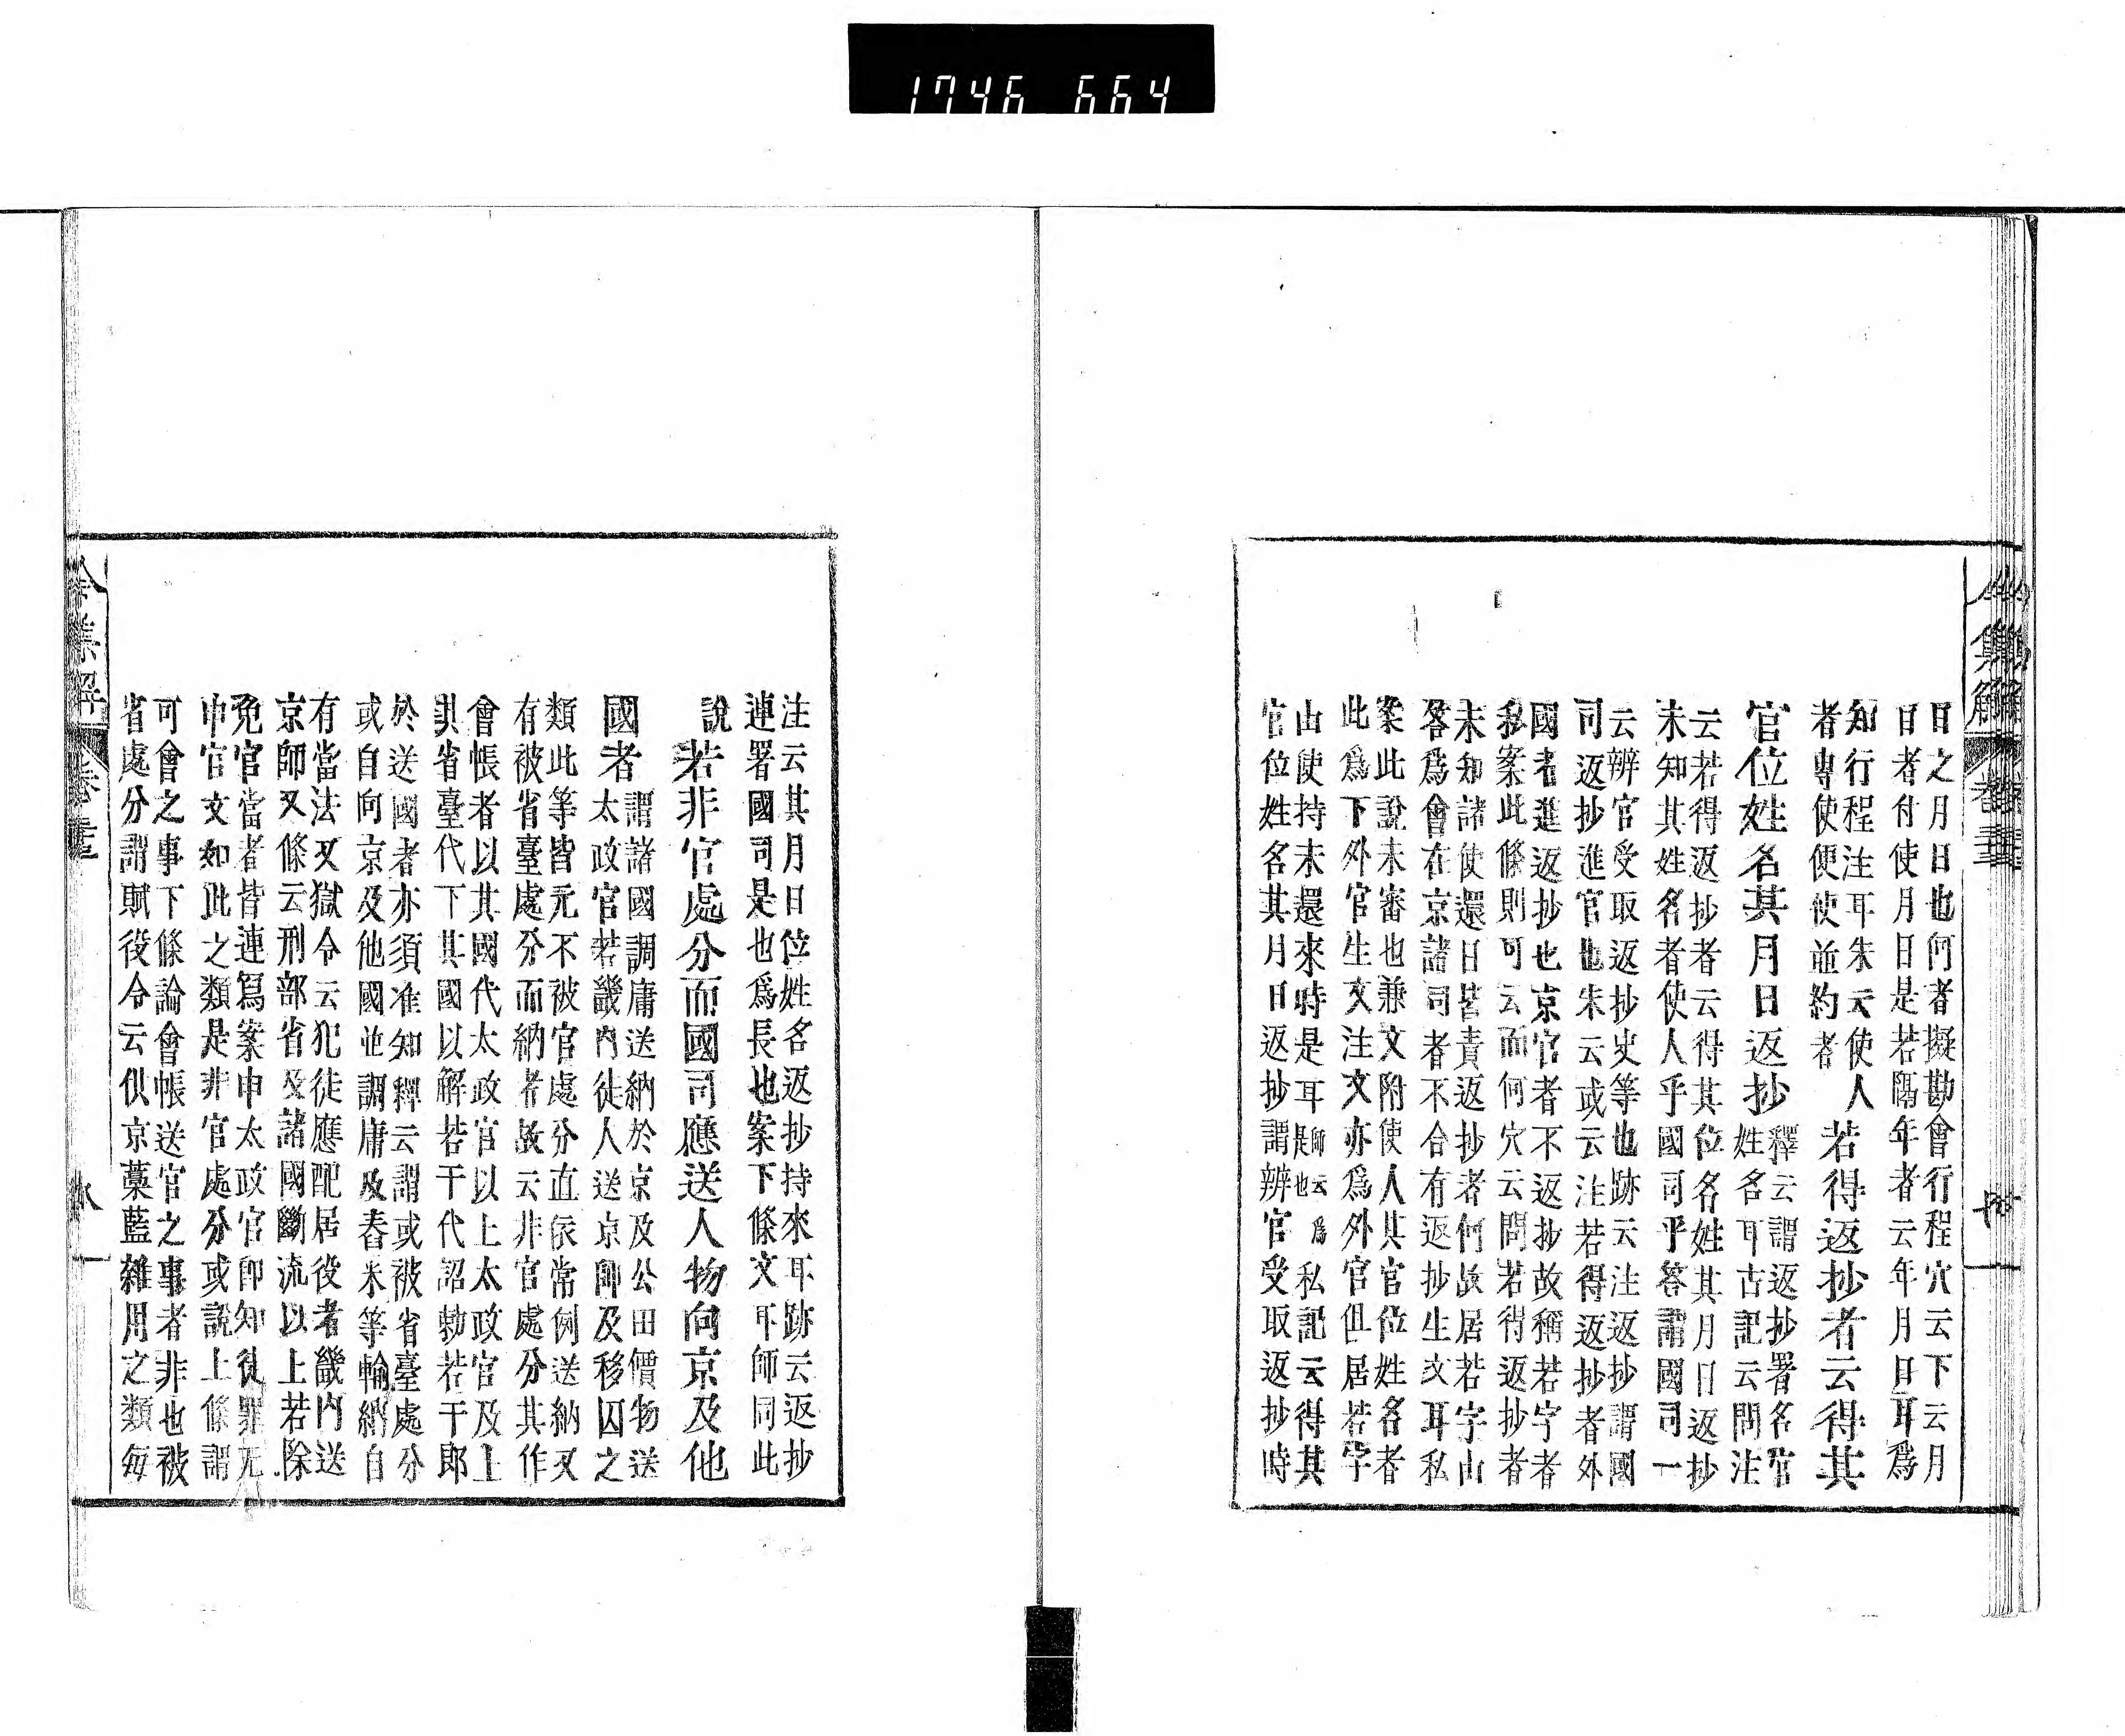 1746 664
日之月日也何者擬勘會行程穴云下云月
日者付使月日是若隔年者云年月日耳爲
知行程注耳朱云使人
者専使便使並約者
若得返抄者云得其
官位姓名其月日返抄
釋云謂返抄署名官
姓名耳古記云問注
云若得返抄者云得其位名姓其月日返抄
未知其姓名者使人乎國司乎答謂國司一
云辨官受取返抄史等也跡云注返抄謂國
司返抄進官也朱云或云注若得返抄者外
國者進返抄也京官者不返抄故稱若字者
私案此條則可云而何穴云問若得返抄者
未知諸使還日皆責返抄者何故居若字山
答爲會在京諸司者不合有返抄生文耳私
案此說未審也兼文附使人其官位姓名者
此爲下外官生文注文亦爲外官但居若字
山使持未還來時是耳
師云爲
是也
私記云得其
官位姓名其月日返抄謂辨官受取返抄時
注云其月日位姓名返抄持來耳跡云返抄
連署國司是也爲長也案下條文耳師同此
說
若非官處分而國司應送人物向京及他
國者
謂諸國調庸送納於京及公田價物送
太政官若畿內徒人送京師及移囚之
類此等皆元不被官處分直依常例送納又
有被省臺處分而納者故云非官處分其作
會帳者以其國代太政官以上太政官及上
其省臺代下其國以解若干代詔勅若干郎
於送國者亦須准知釋云謂或被省臺處分
或自向京及他國並調庸及舂米等輸納自
有當法又獄令云犯徒應配居役者畿内送
京師又條云刑部省及諸國斷流以上若除
免官當者皆連寫案申太政官即知徒罪无
申官文如此之類是非官處分或說上條謂
可會之事下條論會帳送官之事者非也被
省處分謂賦役令云供京藁藍雜用之類每
令集解 卷